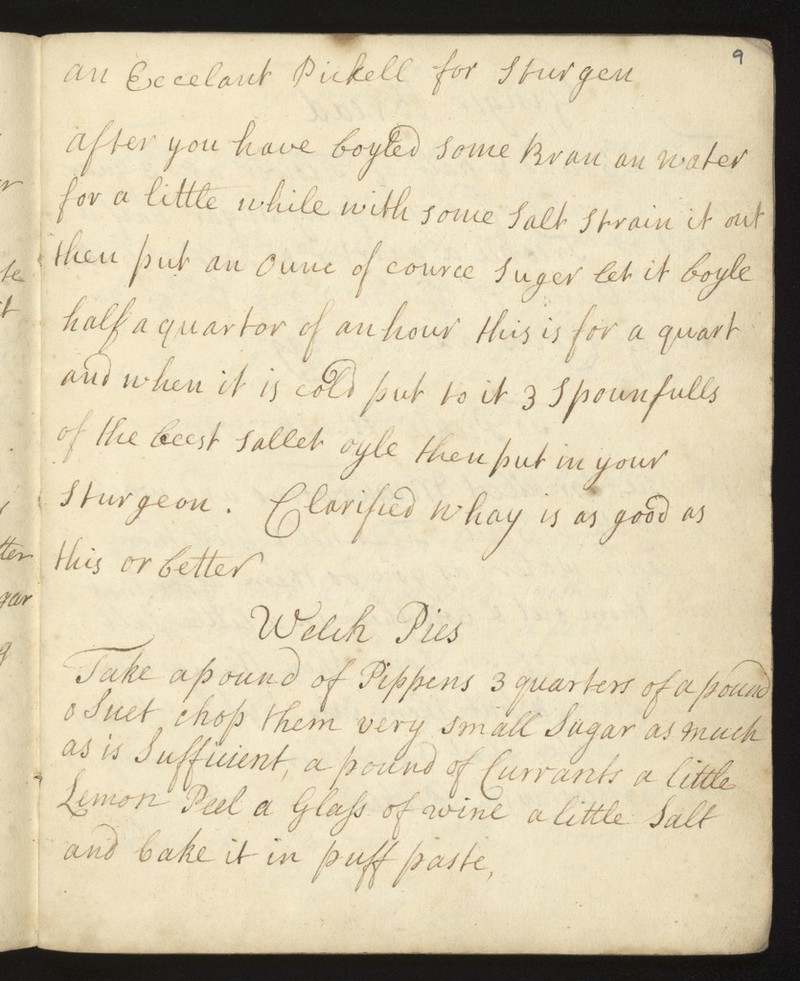 9
an Eccelant Pickell for Sturgen
after you have boyled some Bran an water
for a little while with some Salt Strain it out
then put an Ounc of cource Suger let it boyle
half a quartor of an hour this is for a quart
and when it is cold put to it 3 Spounfulls
of the beest Sallet oyle then put in your
Sturgeon. Clarified Whay is as good as
this or better
Welch Pies
Take a pound of Pippens 3 quarters of a pound
o Suet chop them very small Sugar as much
as is Sufficient, a pound of Currants a little
Lemon Peel a Glass of wine a little Salt
and bake it in puff paste,